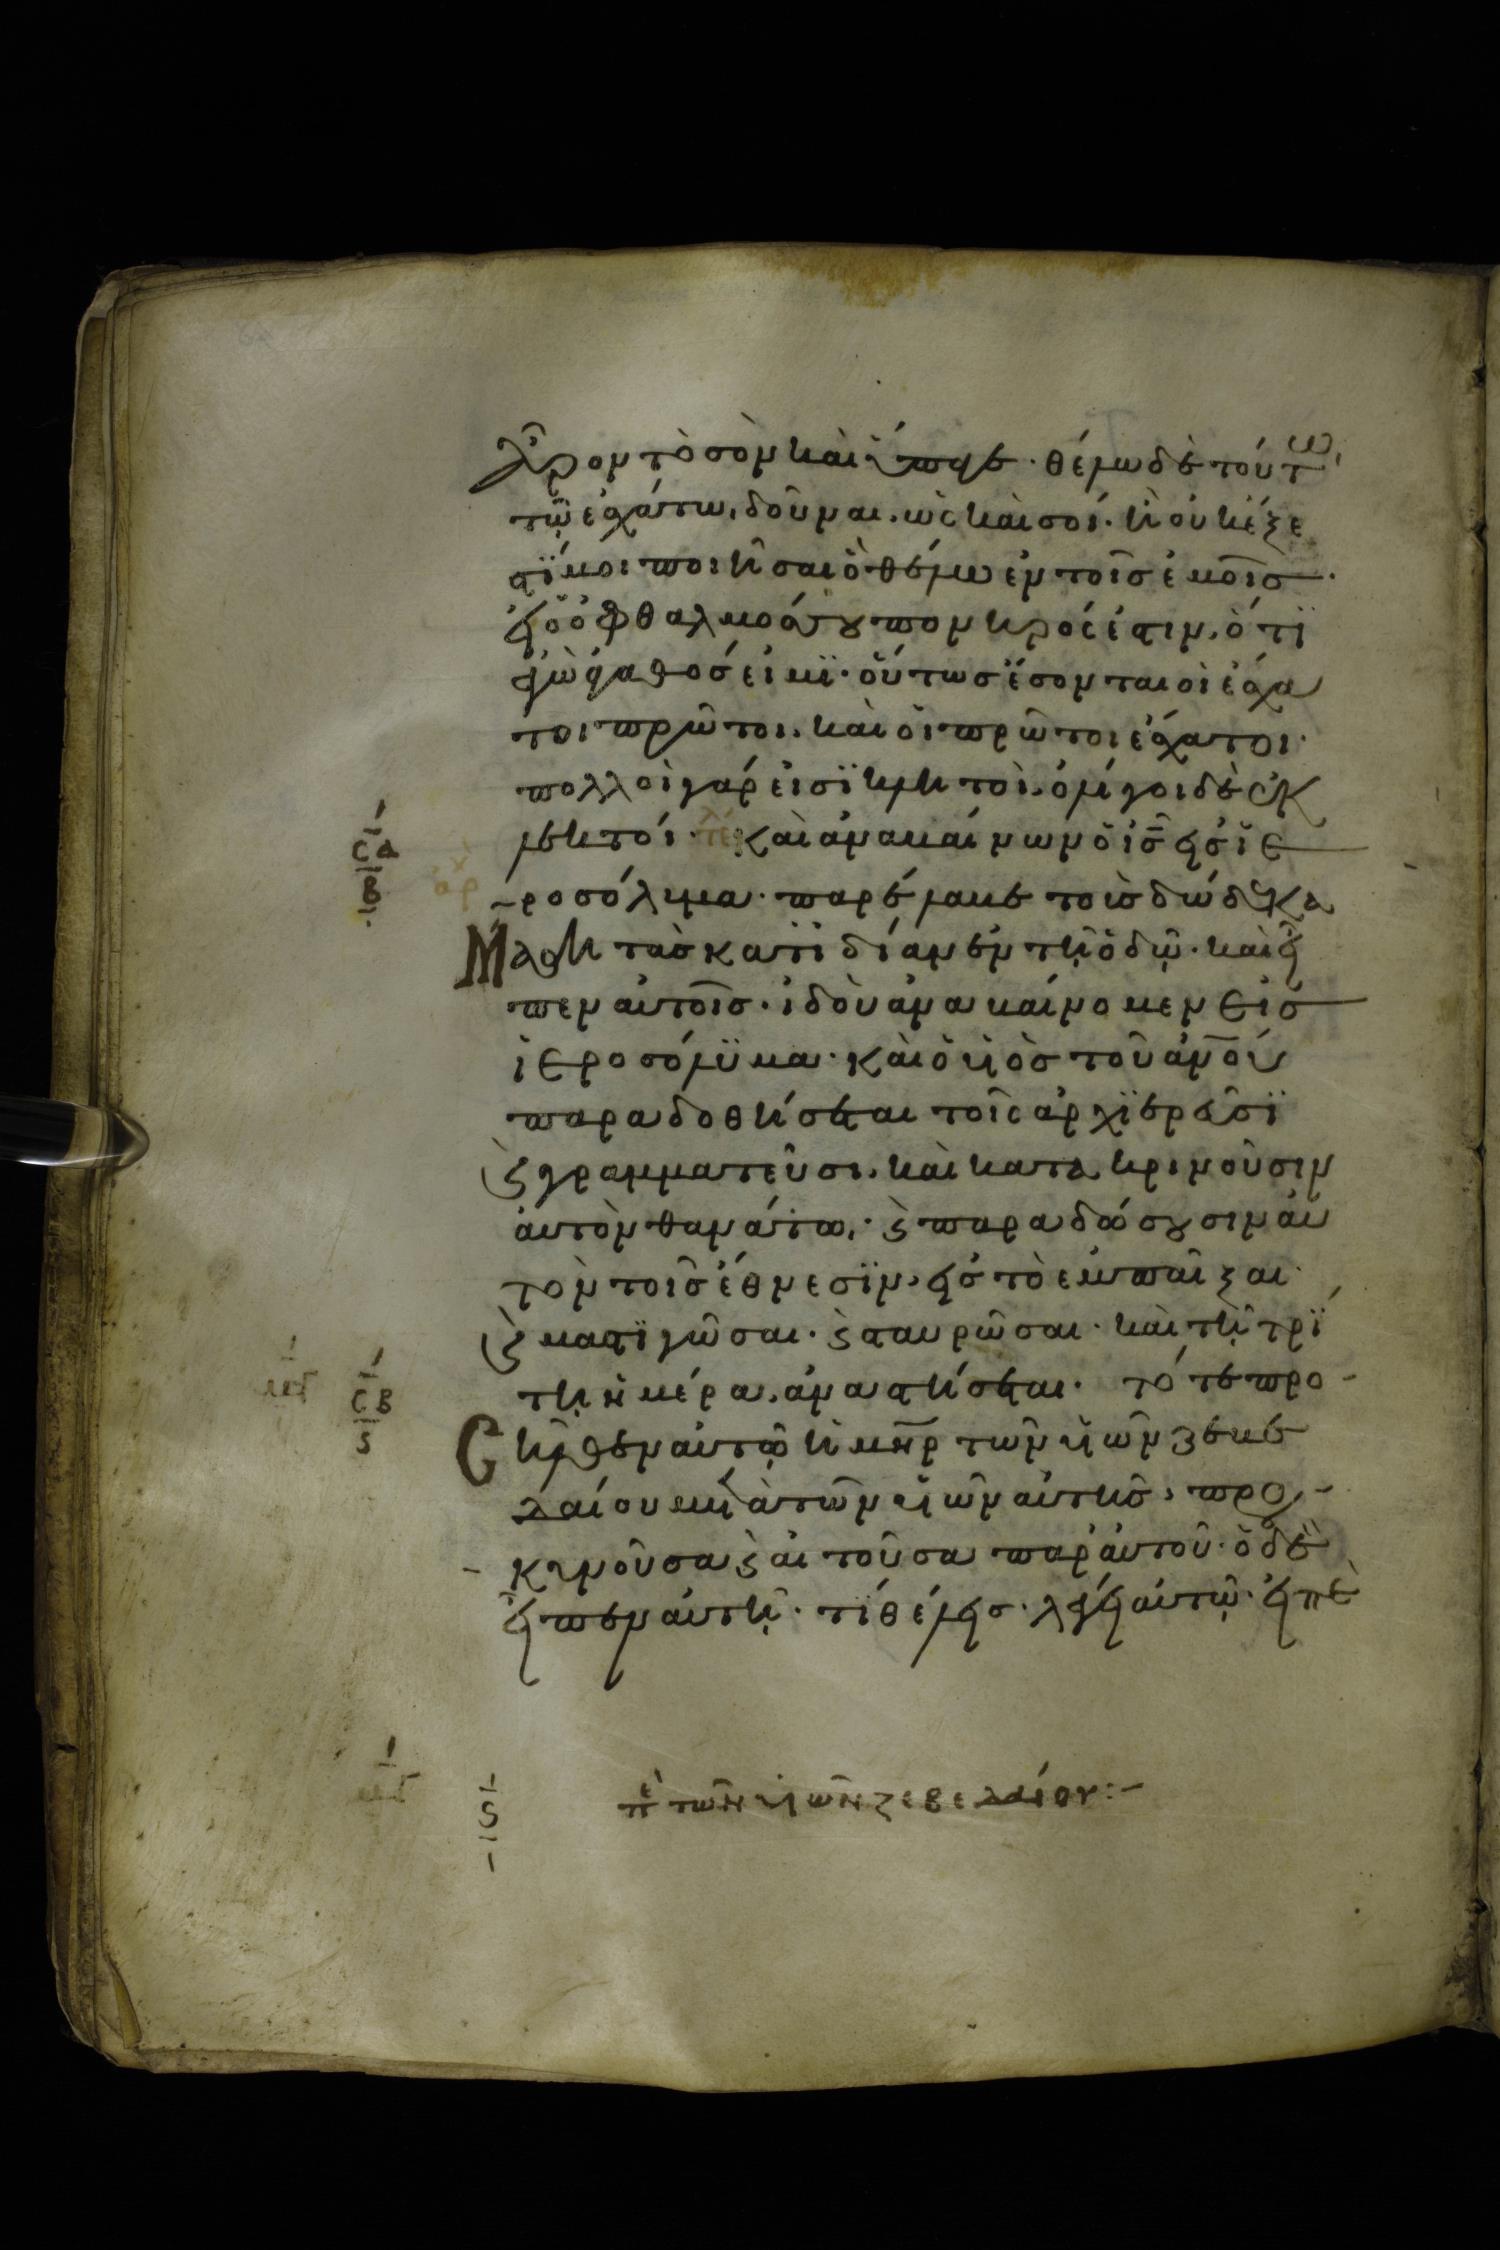 ἆρον τὸ σὸν καὶ ὕπαγε · θέλω δὲ τούτω
τῷ ἐσχάτω, δοῦναι. ὡς καὶ σοί. ἢ οὐκ ἔξε
στί μοι ποιῆσαι ὃ θέλω ἐν τοῖς ἐμοῖς ·
εἰ ὁ ὀφθαλμός σου πονηρός ἐστιν, ὅτι
ἐγὼ ἀγαθός εἰμϊ · οὕτως ἔσονται οἱ ἔσχα
τοι πρῶτοι. καὶ οἱ πρῶτοι ἔσχατοι ·
πολλοὶ γάρ εἰσϊ κλητοὶ. ὀλίγοι δὲ ἐκ
λεκτοί · τέλ Καὶ ἀναβαίνων ὁ ις εἰς ϊε
ροσόλυμα · παρέλαβε τοὺς δώδεκα
Μαθητὰς κατ ϊδίαν ἐν τῇ ὁδῷ · καὶ εἶ
πεν αὐτοῖς · ἰδοὺ ἀναβαίνομεν εἰς
ἱεροσόλϋμα · καὶ ὁ υἱὸς τοῦ ανου
παραδοθήσεται τοῖς ἀρχϊερεῦσϊ
ϗ γραμματεῦσι. καὶ κατακρινοῦσιν
αὐτὸν θανάτω, · ϗ παραδώσουσιν αὐ
τὸν τοῖς ἔθνεσϊν, εἰς τὸ ἐμπαῖξαι ·
ϗ μαστϊγῶσαι · ϗ σταυρῶσαι · καὶ τῇ τρί
τῃ ἡμέρα, ἀναστήσεται · τότε προ
Σῆλθεν αὐτῷ ἡ μηρ τῶν υἱῶν ζεβε
δαίου μετὰ τῶν υἱῶν αὐτῆς, προσ
κυνοῦσα ϗ αἰτοῦσα παρ αὐτοῦ · ὁ δὲ
εἶπεν αὐτῇ · τί θέλεις · λέγει αὐτῷ · εἰπὲ
ἀρχ
σα
β
σβ
ς
ς
πε τῶν υἱῶν ζεβεδαίου :–